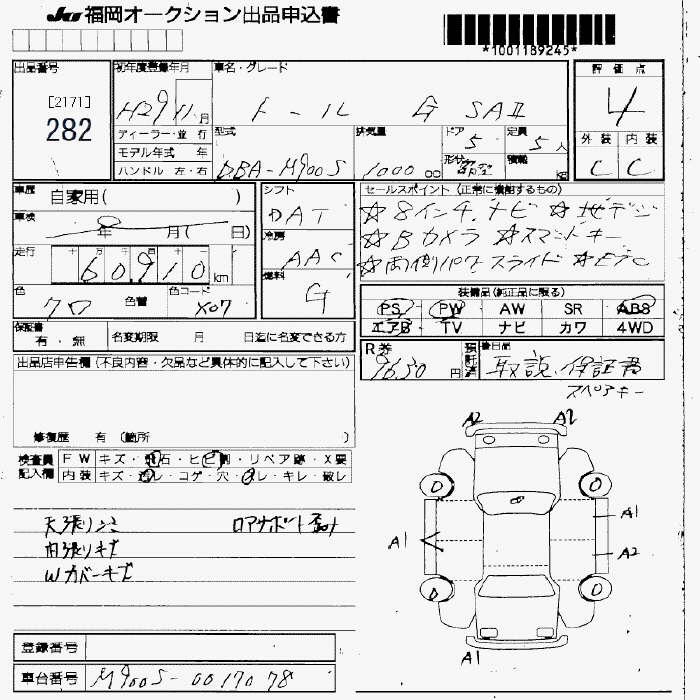 JU 福岡オークション出品申込書
*1001189245*
出品番号
[2171]
282
初年度登録年月
H29 11月
車名・グレード
トール G SAⅡ
評価点
4
外装 内装
C C
ディーラー・並行
モデル年式 年
ハンドル 左・右
型式
DBA-M900S
排気量
1000 cc
ドア
5
形状
定員
5人
積載
kg
車歴
自家用( )
車検
年 月( 日)
走行
十 万 千 百 十
60,910 km
色
クロ
色替
色コード
X07
シフト
DAT
冷房
AAC
燃料
G
セールスポイント (正常に機能するもの)
☆8インチ.ナビ ☆地デジ
☆Bカメラ ☆スマートキー
☆両側パワースライド ☆ETC
装備品(純正品に限る)
PS PW AW SR ABS
エアB TV ナビ カワ 4WD
保証書
有・無
名変期限 月 日迄に名変できる方
R券
9630円
預託済
後日品
取説、保証書
スペアキー
出品店申告欄(不良内容・欠品など具体的に記入して下さい)
修復歴 有 (箇所 )
検査員記入欄
FW キズ・飛石・ヒビ割・リペア跡・X要
内装 キズ・汚レ・コゲ・穴・スレ・キレ・破レ
天張りシミ ロアサポート歪ミ
内張りキズ
Wカバーキズ
A2 A2
A1
A1
A2
A1
登録番号
車台番号
M900S-0017078